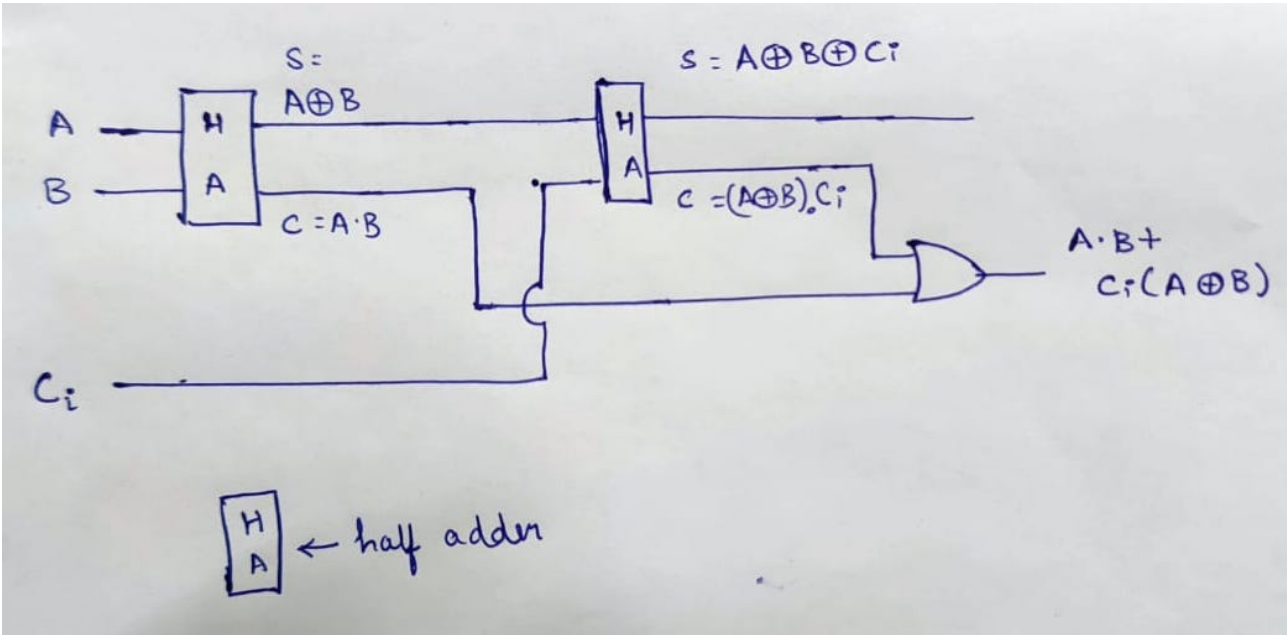 S =
A⊕B
S = A⊕B⊕Ci
A
H
A
H
A
B
C = A·B
C = (A⊕B).Ci
A·B+
Ci(A⊕B)
Ci
H
A
← half adder